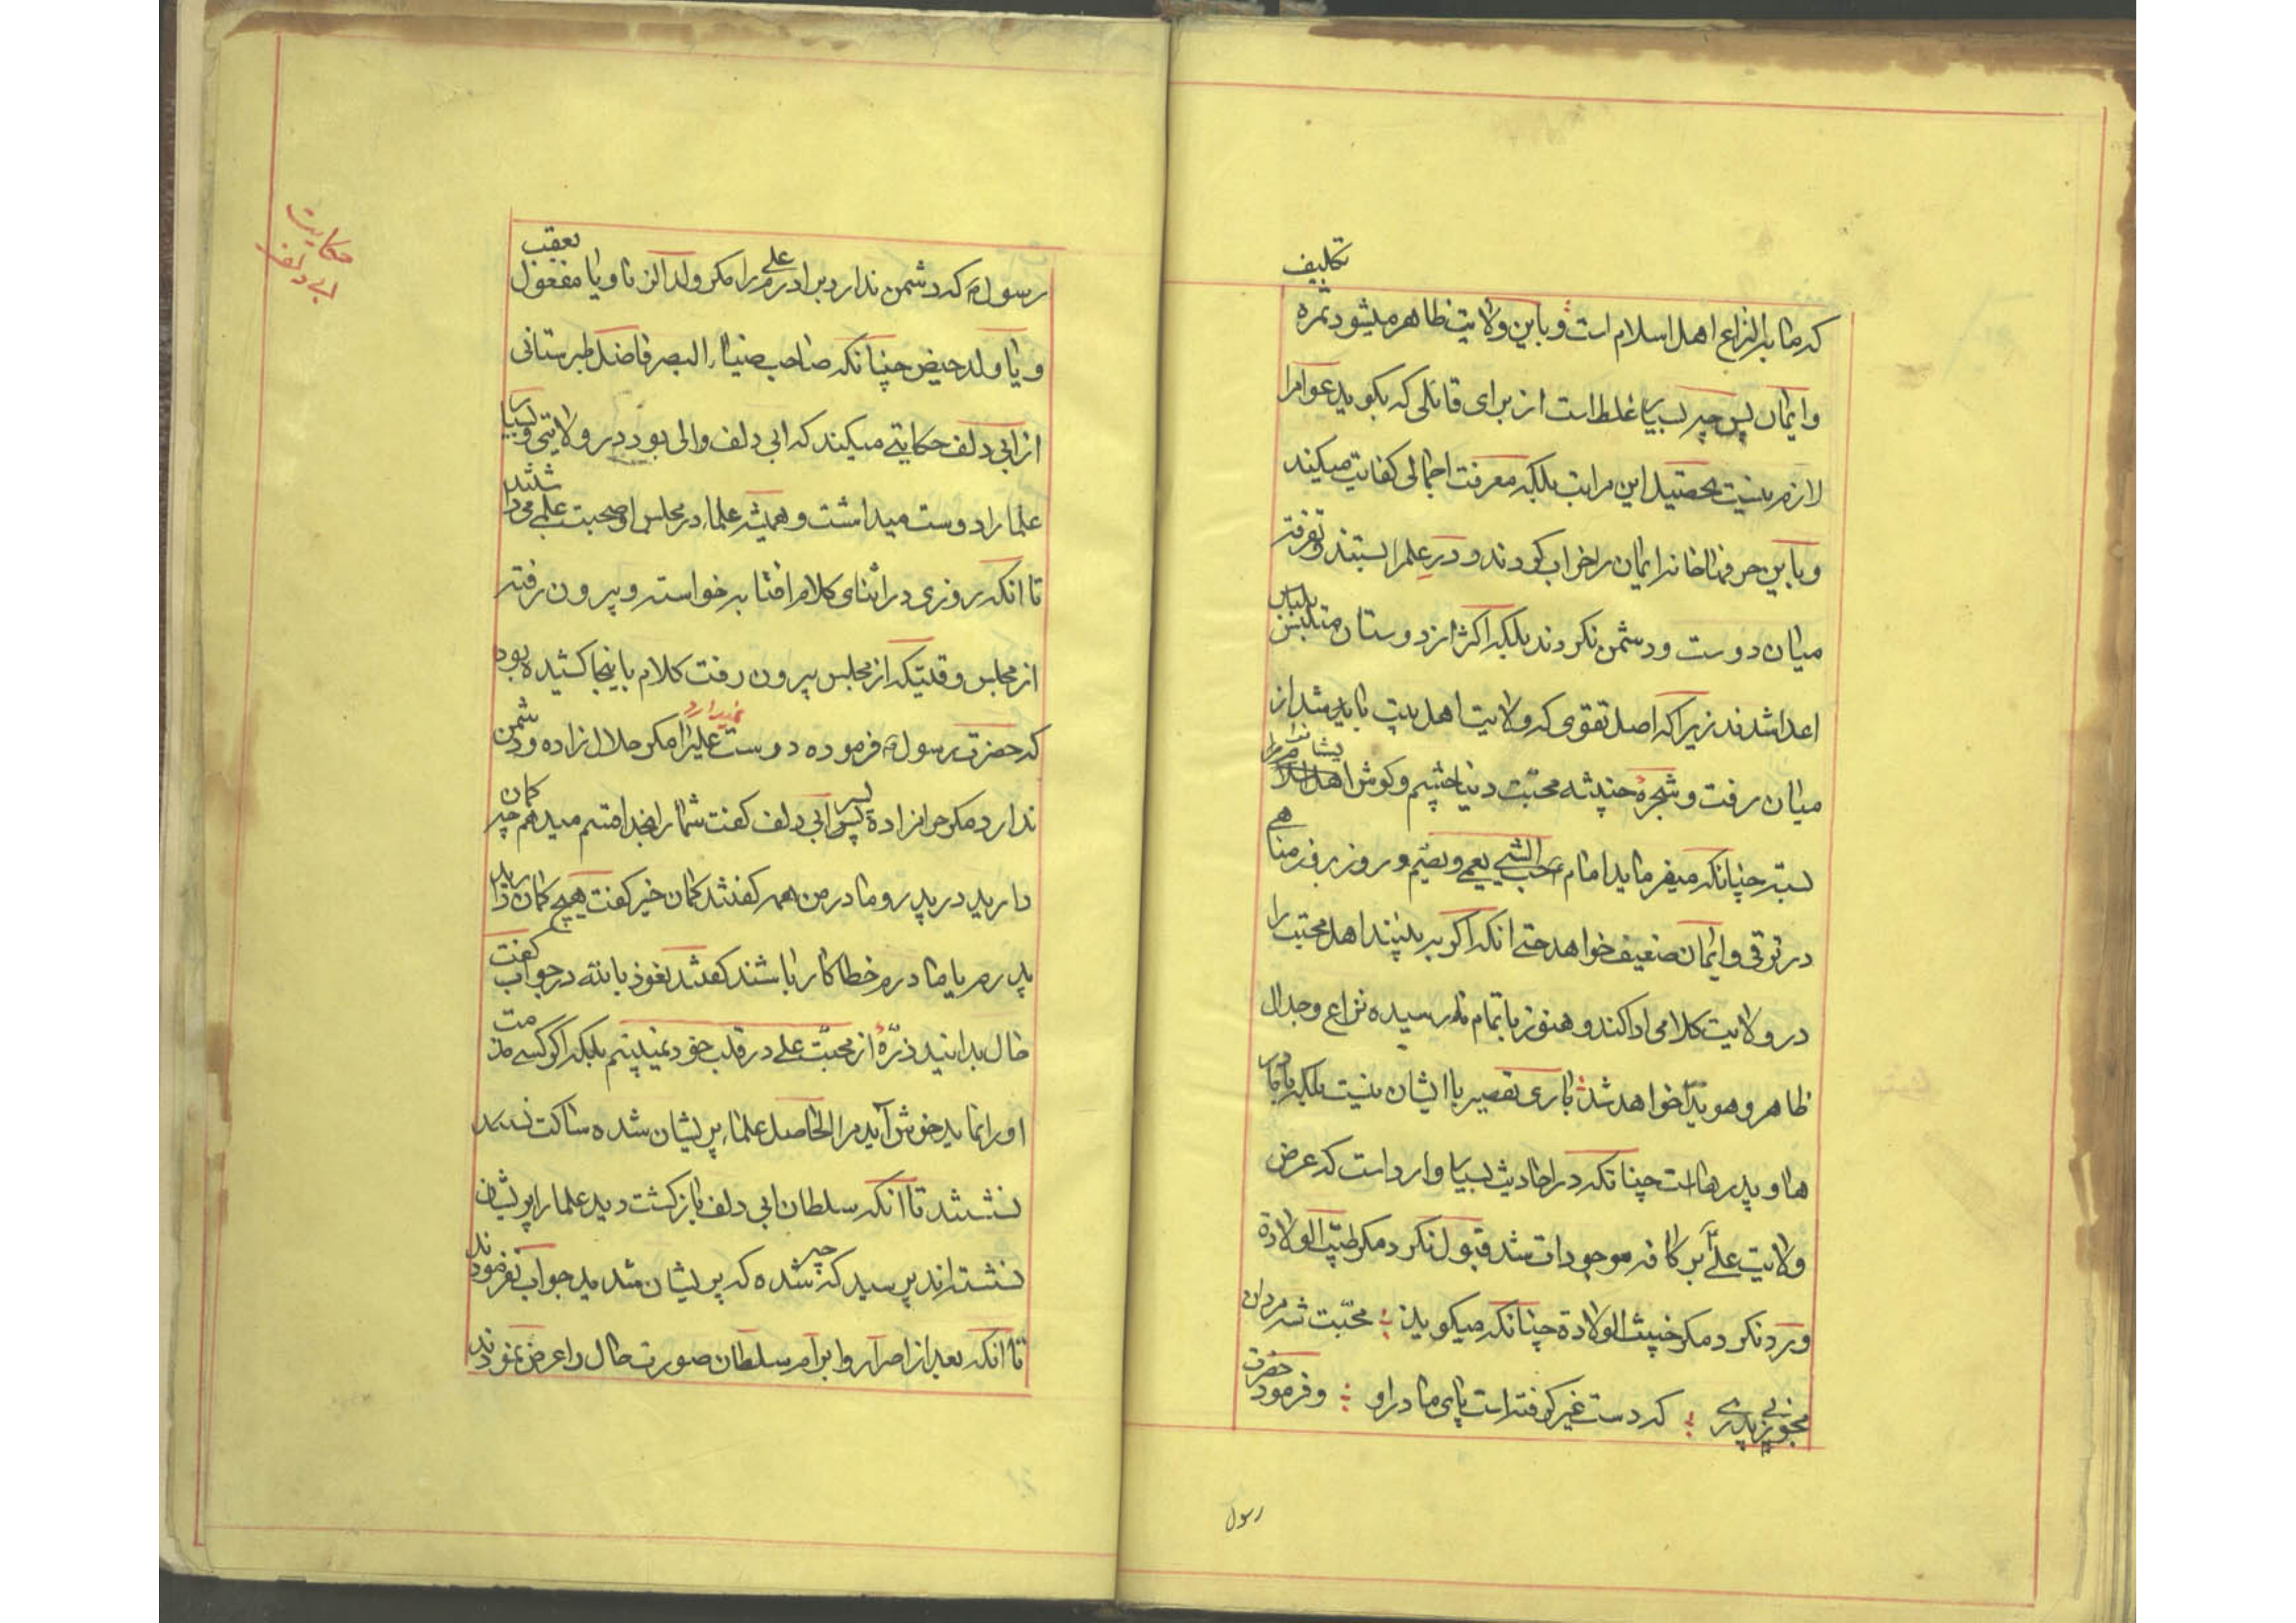 که ما به النزاع اهل اسلام است و باین ولایت ظاهر میشود ثمره تکلیف
و ایمان پس چه بسیار غلط است از برای قائلی که بگوید عوام را
لازم نیست تحصیل این مراتب بلکه معرفت اجمالی کفایت میکند
و باین حرفها خانه ایمان را خراب کردند و در علم را بستند و تفرقه
میان دوست و دشمن نکردند بلکه اکثر از دوستان متلبس بلباس
اعدا شدند زیرا که اصل تقوی که ولایت اهل بیت باید باشد از
میان رفت و شجرهٔ خبیثه محبت دنیا چشم و گوش ایشانرا
بسته چنانکه میفرماید امام ع حب الشیء یعمی و یصم و روز بروز مناهی
در ترقی و ایمان ضعیف خواهد حتی انکه اگر به بینند اهل محبت را
در ولایت کلامی ادا کند و هنوز باتمام نه رسیده نزاع و جدال
ظاهر و هویدا خواهد شد باری تقصیر با ایشان نیست بلکه با مادر
ها و پدرها است چنانکه در احادیث بسیار وارد است که عرض
ولایت علی بر کافه موجودات شد قبول نکرد مگر طیب الولادة
و رد نکرد مگر خبیث الولادة چنانکه میگوید محبت شه مردان
مجو ز بی پدری که دست غیر گرفته است پای مادر او و فرمود حضرت
رسول
رسول ص که دشمن ندارد برادرم علی را مگر ولد الزنا و یا مفعول بعقب
و یا ولد حیض چنانکه صاحب ضیاء البصر فاضل طبرستانی
از ابی دلف حکایتی میکند که ابی دلف والی بود در ولایتی و بسیار
علما را دوست میداشت و همیشه علماء در مجلس او صحبت علمی میداشتند
تا انکه روزی در اثنای کلام افتابه خواسته و بیرون رفته
از مجلس وقتیکه از مجلس بیرون رفت کلام باینجا کشیده بود
که حضرت رسول ص فرموده دوست نمیدارد علی را مگر حلال زاده و دشمن
ندارد مگر حرامزاده پسر ابی دلف گفت شما را بخدا قسم میدهم چه گمان
دارید در پدر و مادر من همه گفتند گمان خیر گفت هیچ گمان دارید
پدرم یا مادرم خطا کار باشند گفتند نعوذ بالله در جواب گفت
حال بدانید ذرهٔ از محبت علی در قلب خود نمیبینم بلکه اگر کسی مذمت
او را نماید خوش آید مرا الحاصل علماء پریشان شده ساکت
نشستند تا انکه سلطان ابی دلف باز گشت دید علما را پریشان
نشسته اند پرسید که چه شده که پریشان شدید جواب نفرمودند
تا انکه بعد از اصرار و ابرام سلطان صورت حال را عرض نمودند
حکایت
ابی دلف